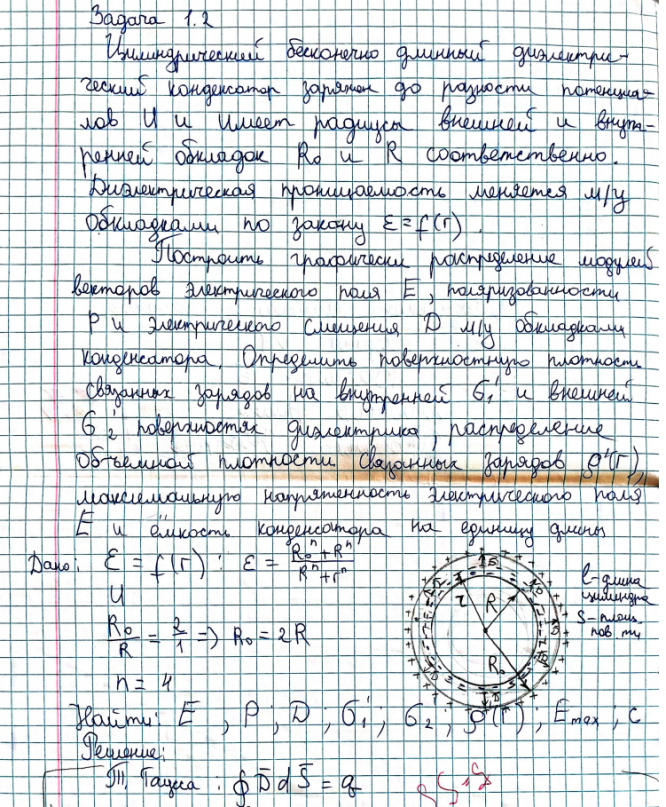 Задача 1.2
Цилиндрический бесконечно длинный диэлектри-
ческий конденсатор заряжен до разности потенциа-
лов U и имеет радиусы внешней и внут-
ренней обкладок R₀ и R соответственно.
Диэлектрическая проницаемость меняется м/у
обкладками по закону ε=f(r).
Построить графически распределение модулей
векторов электрического поля E, поляризованности
P и электрического смещения D м/у обкладками
конденсатора. Определить поверхностную плотность
связанных зарядов на внутренней σ₁' и внешней
σ₂' поверхностях диэлектрика, распределение
объемной плотности связанных зарядов ρ'(r),
максимальную напряженность электрического поля
E и ёмкость конденсатора на единицу длины
Дано: ε = f(r) : ε = (R₀ⁿ+Rⁿ)/(Rⁿ+rⁿ)
U
R₀/R = 2/1 => R₀ = 2R
n = 4
r
R
R₀
l - длина
цилиндра
S - площ.
Найти: E, P, D, σ₁'; σ₂'; ρ'(r), Emax, c
Решение:
Т. Гаусса: ∮D̄dS̄ = q